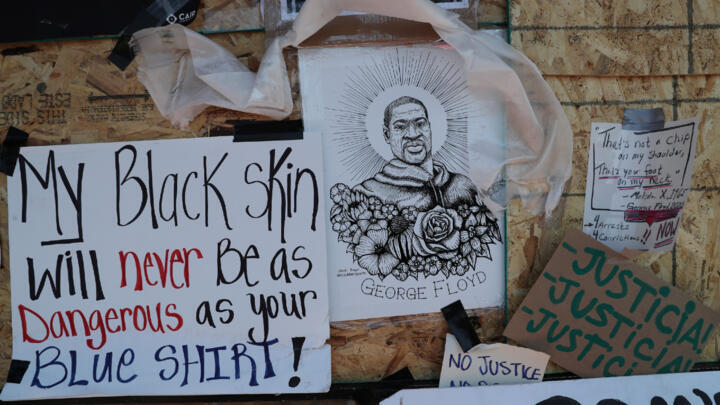 CAIR
THIS SIDE
ESTE LADO
My Black Skin
will never Be as
Dangerous as your
BLUE SHIRT!
GEORGE FLOYD
"That's not a chip
on my Shoulder,
That's your foot
on my neck."
- Malcolm X
- George Floyd
4 Arrests
4 Convictions!!
NOW
-JUSTICIA!
-JUSTICIA!
-JUSTICIA!
NO JUSTICE
NO